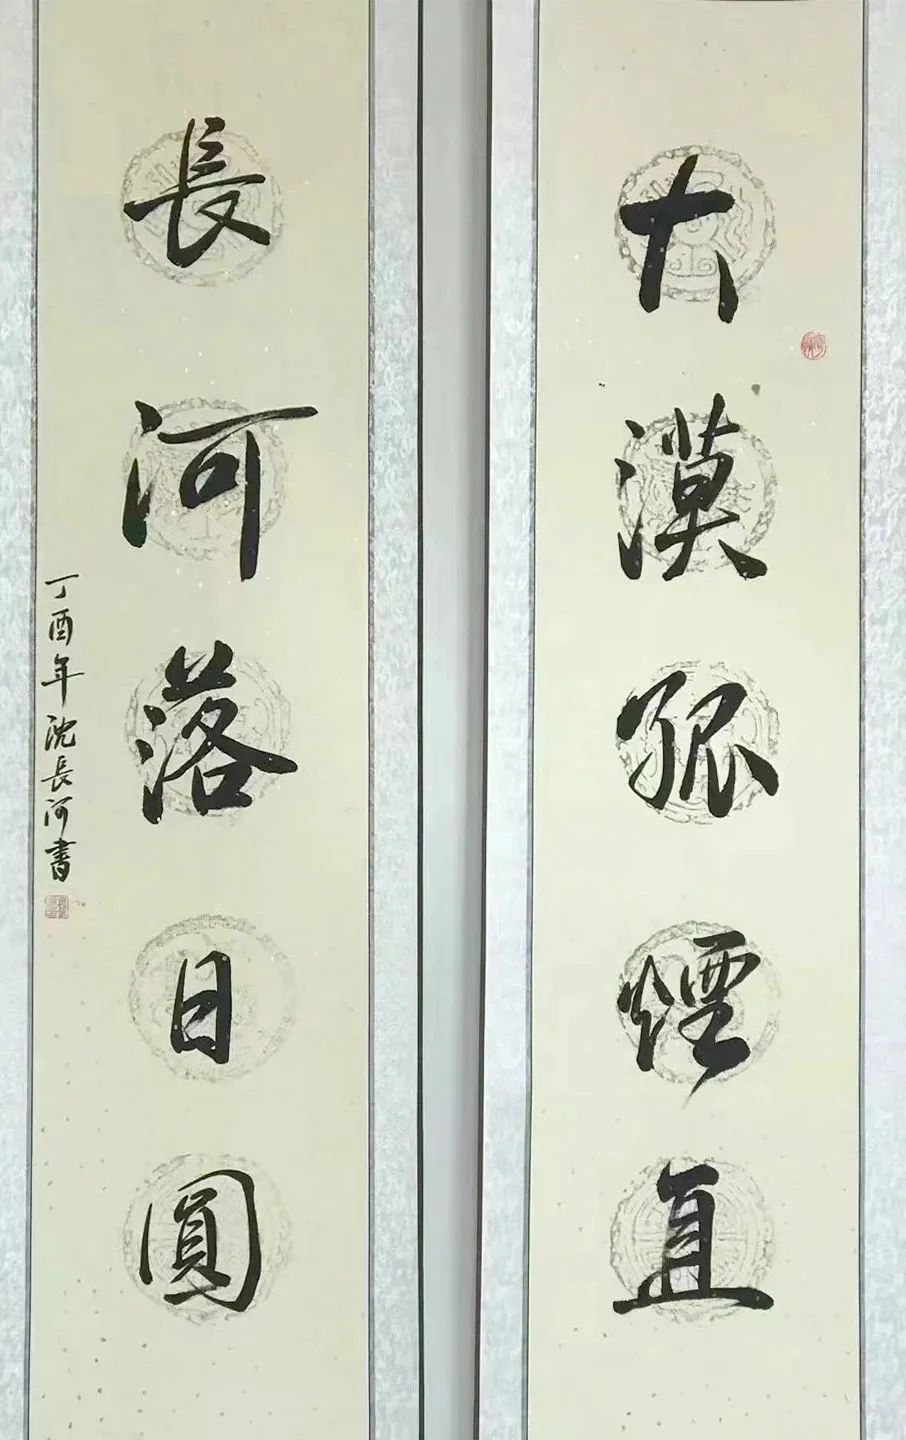 大漠孤煙直
長河落日圓
丁酉年沈長河書